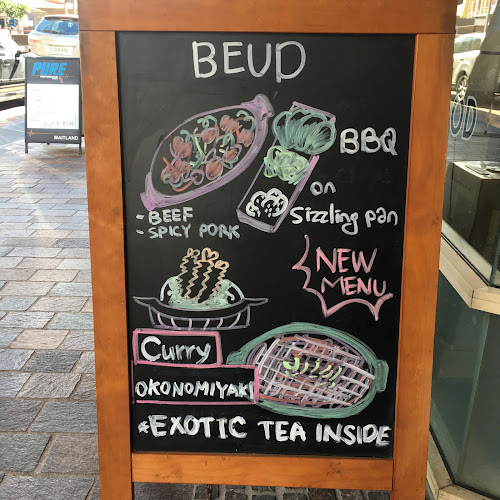 BEUD
BBQ
on
Sizzling pan
- BEEF
- SPICY PORK
NEW
MENU
Curry
OKONOMIYAKI
*EXOTIC TEA INSIDE
PURE
MAITLAND